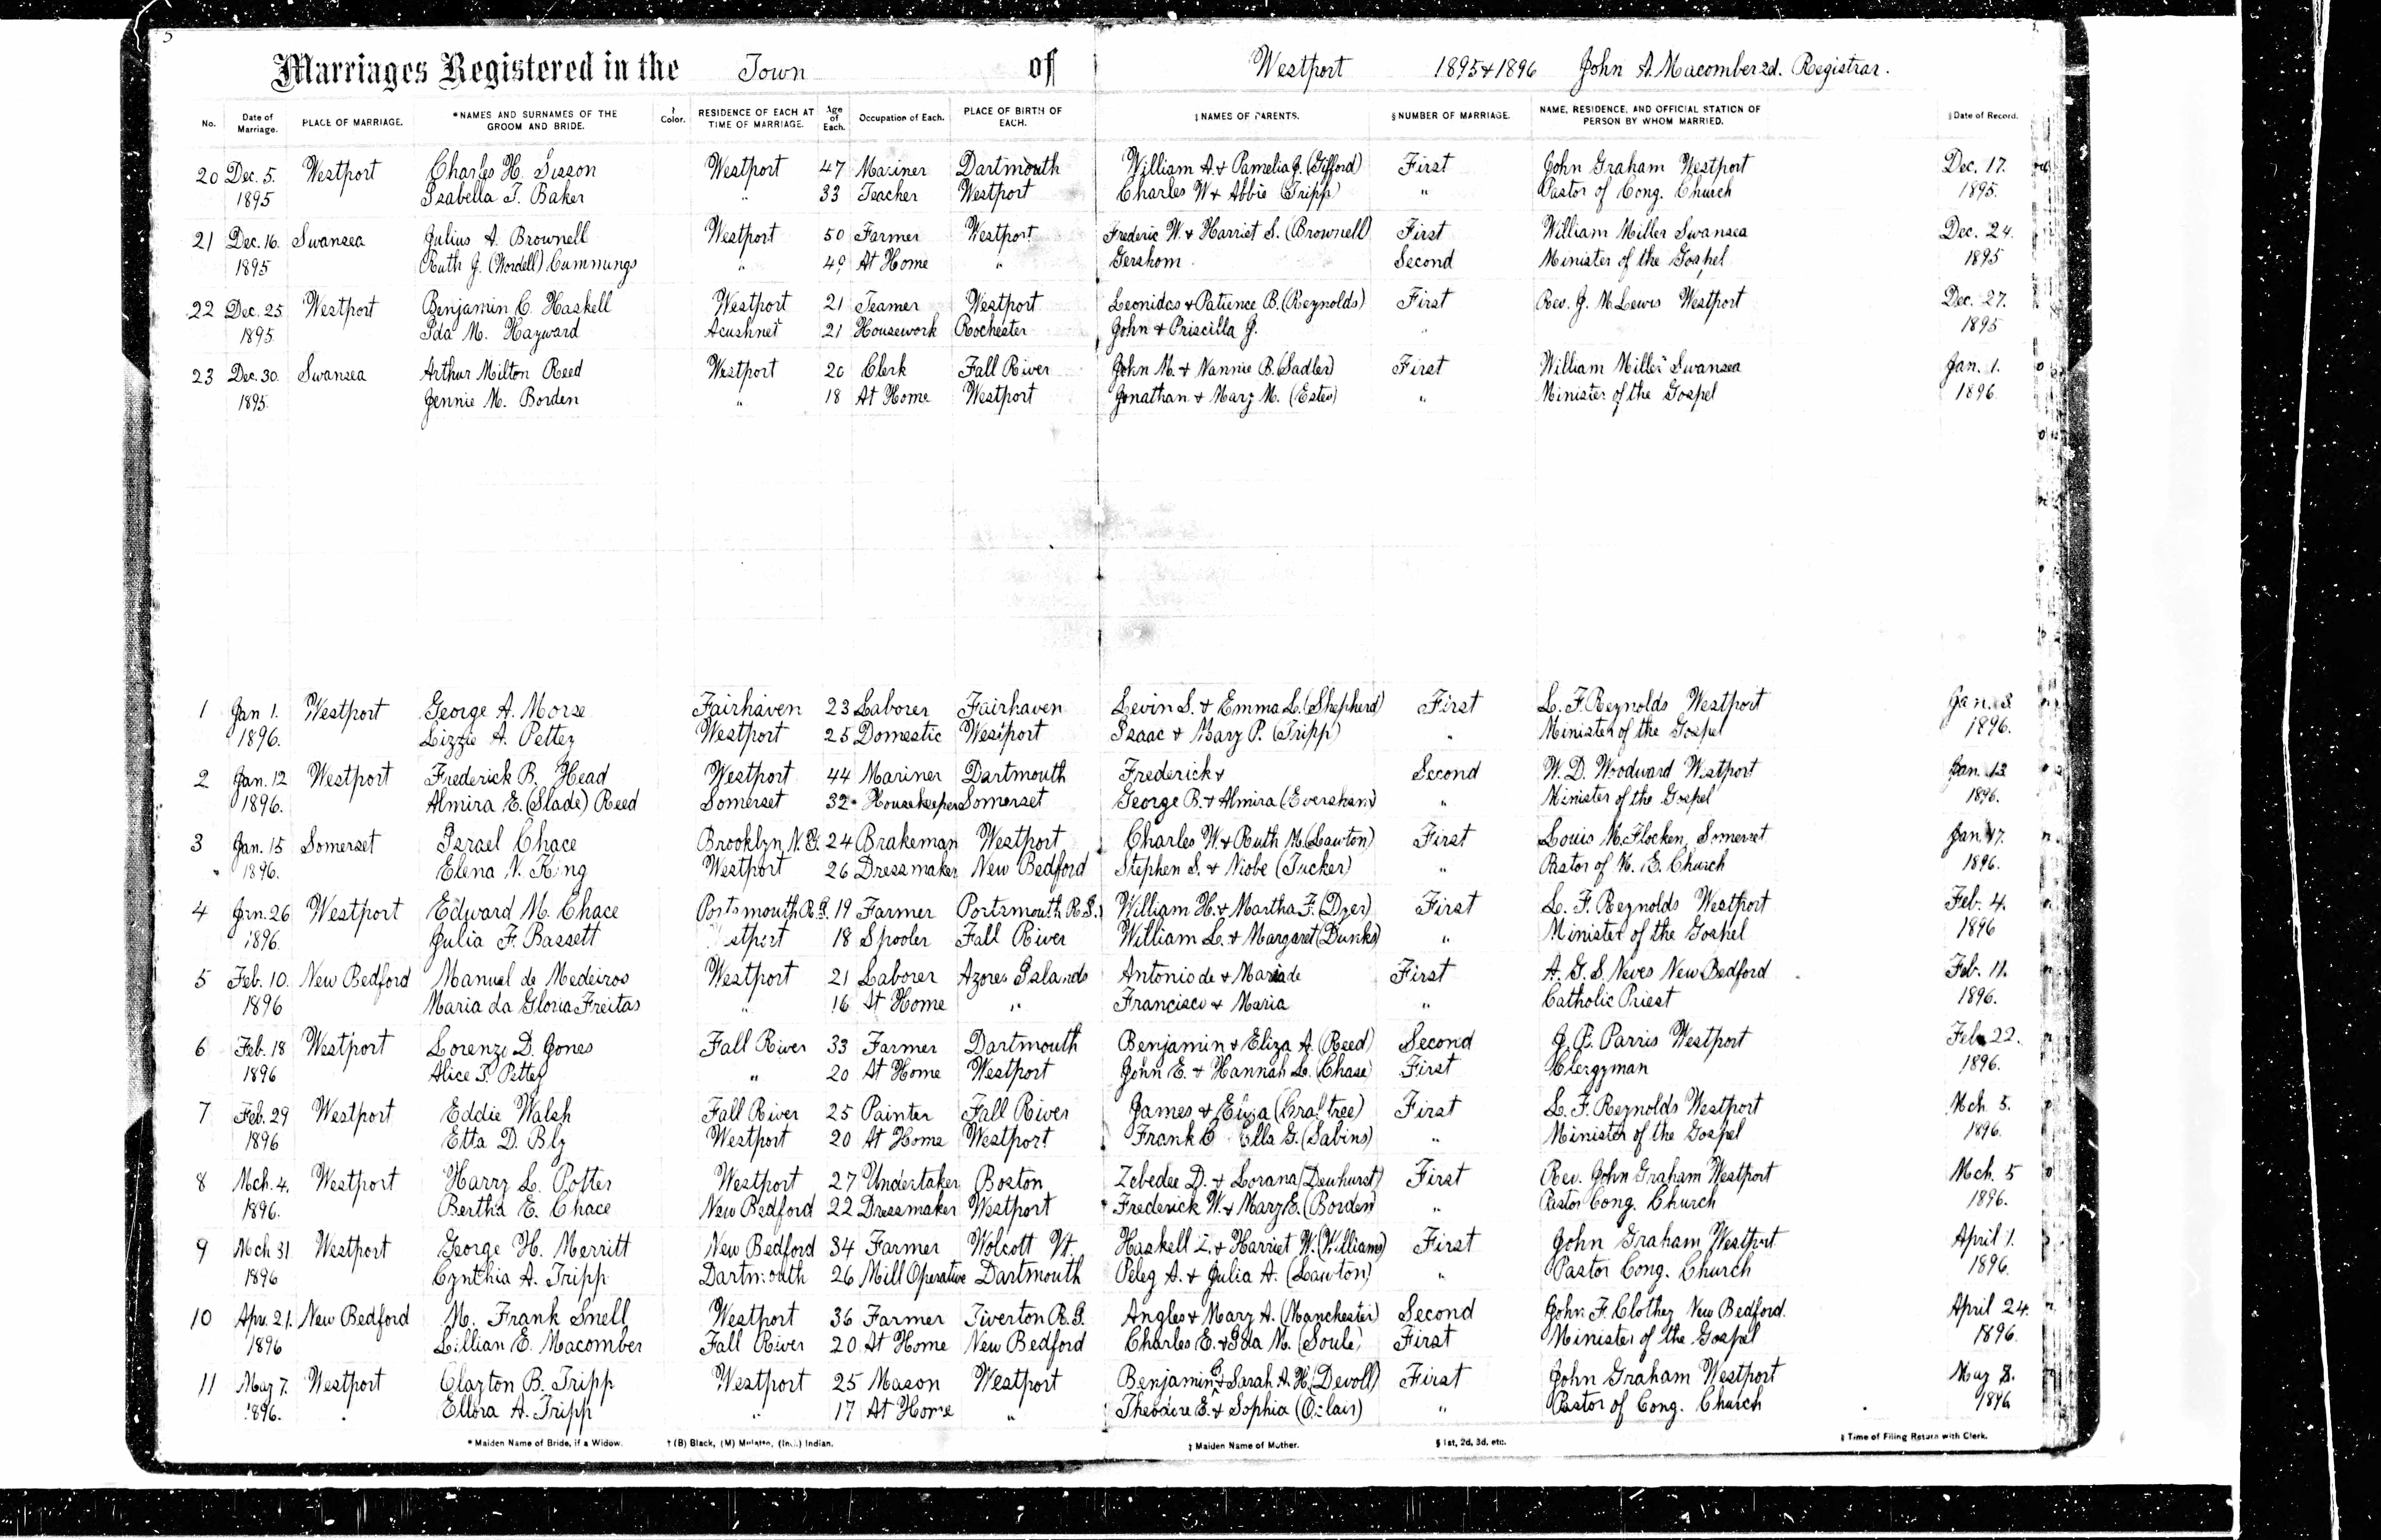 5
Marriages Registered in the Town of Westport 1895 & 1896 John A. Macomber 2d. Registrar.
No. Date of Marriage. PLACE OF MARRIAGE. *NAMES AND SURNAMES OF THE GROOM AND BRIDE. † Color. RESIDENCE OF EACH AT TIME OF MARRIAGE. Age of Each. Occupation of Each. PLACE OF BIRTH OF EACH. ‡NAMES OF PARENTS. §NUMBER OF MARRIAGE. NAME, RESIDENCE, AND OFFICIAL STATION OF PERSON BY WHOM MARRIED. Date of Record.
20 Dec. 5. Westport Charles H. Sisson Westport 47 Mariner Dartmouth William A. & Pamelia J. (Gifford) First John Graham Westport Dec. 17.
1895 Isabella T. Baker " 33 Teacher Westport Charles W & Abbie (Tripp) " Pastor of Cong. Church 1895.
21 Dec. 16. Swansea Julius A. Brownell Westport 50 Farmer Westport Frederic W. & Harriet S. (Brownell) First William Miller Swansea Dec. 24.
1895 Ruth J. (Wordell) Cummings " 49 At Home " Gershom Second Minister of the Gospel 1895
22 Dec. 25 Westport Benjamin C. Haskell Westport 21 Teamer Westport Leonidas & Patience B. (Reynolds) First Rev. J. M. Lewis Westport Dec. 27.
1895 Ida M. Hayward Acushnet 21 Housework Rochester John & Priscilla J. " 1895
23 Dec. 30. Swansea Arthur Milton Reed Westport 20 Clerk Fall River John M. & Nannie B. (Sadler) First William Miller Swansea Jan. 1.
1895. Jennie M. Borden " 18 At Home Westport Jonathan & Mary M. (Estes) " Minister of the Gospel 1896
1 Jan 1. Westport George A. Morse Fairhaven 23 Laborer Fairhaven Levin S. & Emma L. (Shepherd) First L. F. Reynolds Westport Jan. 3.
1896. Lizzie A. Pettey Westport 25 Domestic Westport Isaac & Mary P. (Tripp) " Minister of the Gospel 1896.
2 Jan. 12 Westport Frederick B. Head Westport 44 Mariner Dartmouth Frederick & Second W. D. Woodward Westport Jan. 13
1896. Almira E. (Slade) Reed Somerset 32 Housekeeper Somerset George B. & Almira (Eversham) " Minister of the Gospel 1896.
3 Jan. 15 Somerset Israel Chace Brooklyn, N.Y. 24 Brakeman Westport Charles W. & Ruth M. (Lawton) First Louis M. Flocken, Somerset Jan. 17.
1896. Elena N. King Westport 26 Dressmaker New Bedford Stephen S. & Niobe (Tucker) " Pastor of M. E. Church 1896.
4 Jan. 26 Westport Edward M. Chace Portsmouth R.I. 19 Farmer Portsmouth R.I. William H. & Martha F. (Dyer) First L. F. Reynolds Westport Feb. 4.
1896. Julia F. Bassett Westport 18 Spooler Fall River William L. & Margaret (Dunks) " Minister of the Gospel 1896
5 Feb. 10. New Bedford Manuel de Medeiros Westport 21 Laborer Azores Islands Antonio de & Maria de First A. G. S. Neves New Bedford Feb. 11.
1896 Maria da Gloria Freitas " 16 At Home " Francisco & Maria " Catholic Priest 1896.
6 Feb. 18 Westport Lorenzo D. Jones Fall River 33 Farmer Dartmouth Benjamin & Eliza A. (Reed) Second J. E. Parris Westport Feb 22.
1896 Alice I. Pettey " 20 At Home Westport John E. & Hannah L. (Chase) First Clergyman 1896.
7 Feb. 29 Westport Eddie Walsh Fall River 25 Painter Fall River James & Eliza (Crabtree) First L. F. Reynolds Westport Mch. 5.
1896 Etta D. Bly Westport 20 At Home Westport Frank C Ella G. (Sabins) " Minister of the Gospel 1896.
8 Mch. 4. Westport Harry L. Potter Westport 27 Undertaker Boston Zebedee D. & Lorana (Dewhurst) First Rev. John Graham Westport Mch. 5
1896. Bertha E. Chace New Bedford 22 Dressmaker Westport Frederick W. & Mary E. (Borden) " Pastor Cong. Church 1896.
9 Mch 31 Westport George H. Merritt New Bedford 34 Farmer Wolcott Vt. Haskell Z. & Harriet W. (Williams) First John Graham Westport April 1.
1896 Cynthia A. Tripp Dartmouth 26 Mill Operative Dartmouth Peleg A. & Julia A. (Lawton) " Pastor Cong. Church 1896.
10 Apr. 21. New Bedford M. Frank Snell Westport 36 Farmer Tiverton R.I. Angles & Mary A. (Manchester) Second John F. Clothey New Bedford. April 24.
1896 Lillian E. Macomber Fall River 20 At Home New Bedford Charles E. & Ida M. (Soule) First Minister of the Gospel 1896.
11 May 7. Westport Clayton B. Tripp Westport 25 Mason Westport Benjamin G. & Sarah A. H. (Devoll) First John Graham Westport May 8.
1896. Ellora A. Tripp " 17 At Home " Theodore E. & Sophia " Pastor of Cong. Church 1896
* Maiden Name of Bride, if a Widow. † (B) Black, (M) Mulatto, (Ind.) Indian. ‡ Maiden Name of Mother. § 1st, 2d, 3d, etc. Time of Filing Return with Clerk.